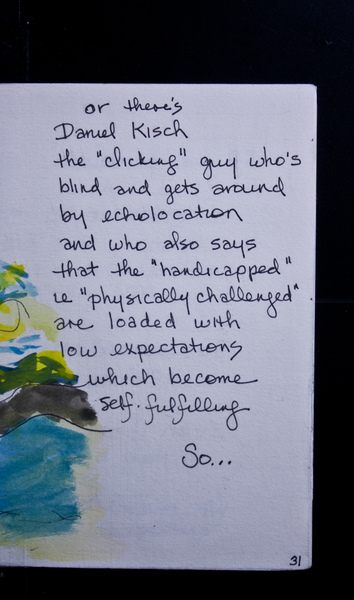 or there's
Daniel Kisch
the "clicking" guy who's
blind and gets around
by echolocation
and who also says
that the "handicapped"
ie "physically challenged"
are loaded with
low expectations
which become
self-fulfilling
So...
31